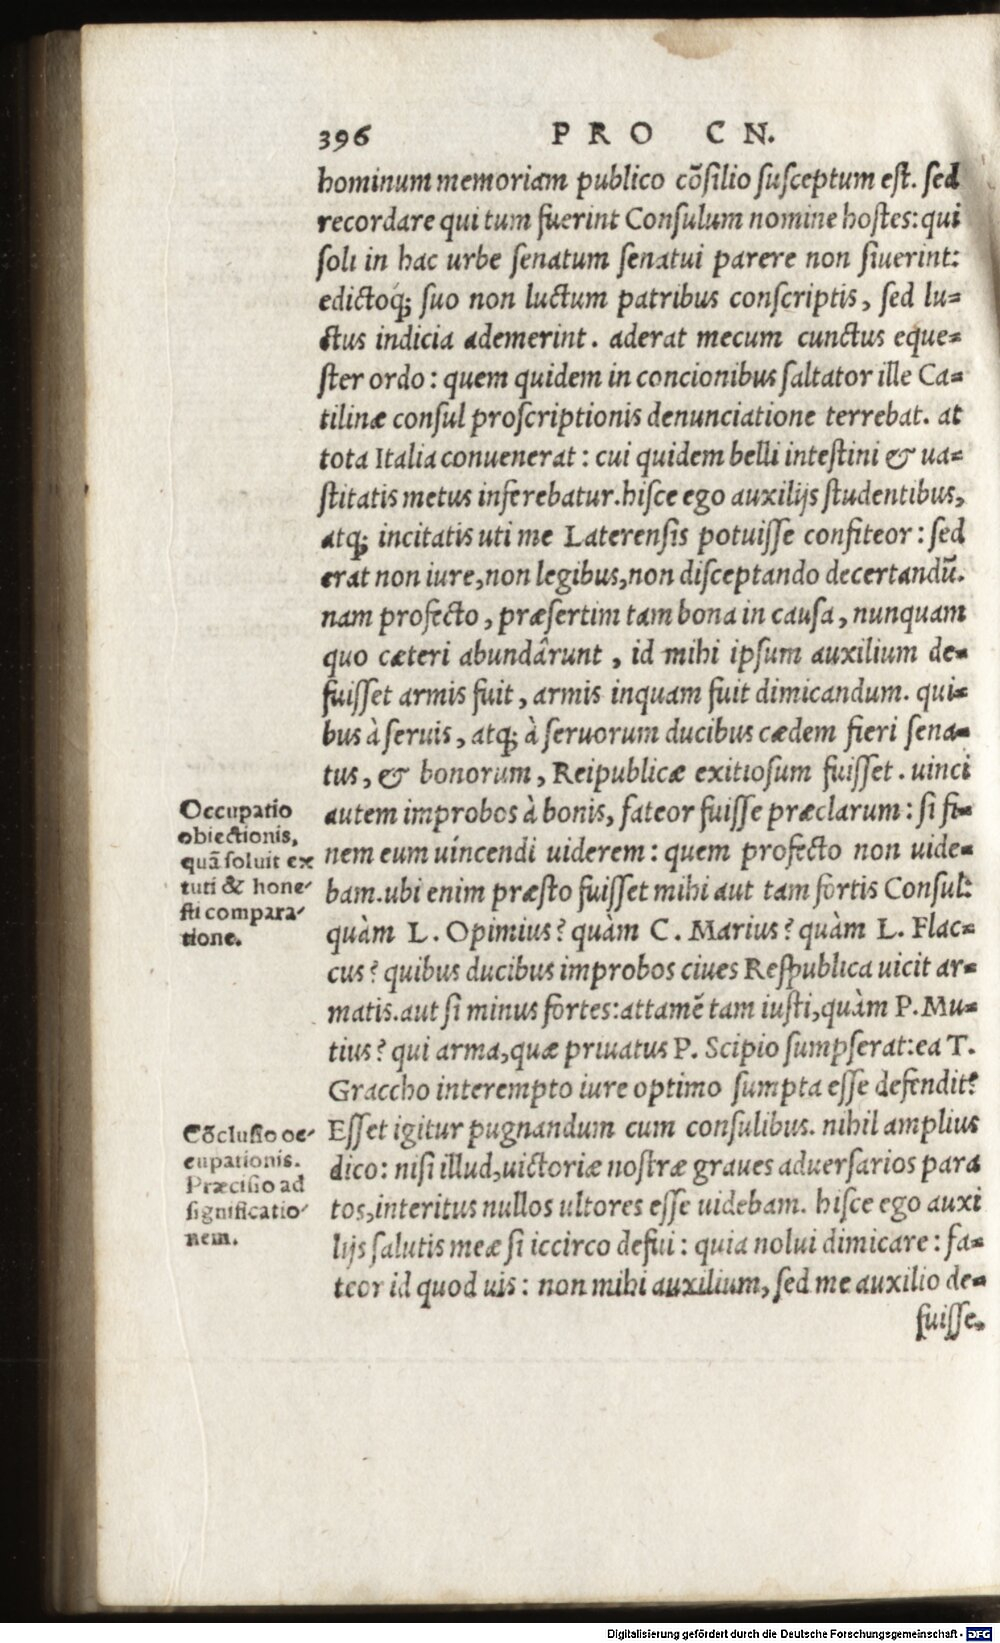 396 PRO CN.
hominum memoriam publico cõſilio ſuſceptum eſt. ſed
recordare qui tum fuerint Conſulum nomine hoſtes: qui
ſoli in hac urbe ſenatum ſenatui parere non ſiuerint:
edictoq́; ſuo non luctum patribus conſcriptis, ſed lu=
ctus indicia ademerint. aderat mecum cunctus eque=
ſter ordo: quem quidem in concionibus ſaltator ille Ca=
tilinæ conſul proſcriptionis denunciatione terrebat. at
tota Italia conuenerat: cui quidem belli inteſtini & ua=
ſtitatis metus inferebatur. hiſce ego auxilijs ſtudentibus,
atq; incitatis uti me Laterenſis potuiſſe confiteor: ſed
erat non iure, non legibus, non diſceptando decertandũ.
nam profecto, præſertim tam bona in cauſa, nunquam
quo cæteri abundârunt, id mihi ipſum auxilium de=
fuiſſet armis fuit, armis inquam fuit dimicandum. qui=
bus à ſeruis, atq; à ſeruorum ducibus cædem fieri ſena=
tus, & bonorum, Reipublicæ exitioſum fuiſſet. uinci
autem improbos à bonis, fateor fuiſſe præclarum: ſi fi=
nem eum uíncendi uiderem: quem profecto non uide=
bam. ubi enim præſto fuiſſet mihi aut tam fortis Conſul:
quàm L. Opimius? quàm C. Marius? quàm L. Flac=
cus? quibus ducibus improbos ciues Reſpublica uicit ar=
matis. aut ſi minus fortes: attamẽ tam iuſti, quàm P. Mu=
tius? qui arma, quæ priuatus P. Scipio ſumpſerat: ea T.
Graccho interempto iure optimo ſumpta eſſe defendit?
Eſſet igitur pugnandum cum conſulibus. nihil amplius
dico: niſi illud, uictoriæ noſtræ graues aduerſarios para
tos, interitus nullos ultores eſſe uidebam. hiſce ego auxi
lijs ſalutis meæ ſi iccirco defui: quia nolui dimicare: fa=
teor id quod uis: non mihi auxilium, ſed me auxilio de=
fuiſſe,
Occupatio
obiectionis,
quã ſoluit ex
tuti & hone-
ſti compara-
tione.
Cõcluſio oc-
cupationis.
Præciſio ad
ſignificatio-
nem.
Digitalisierung gefördert durch die Deutsche Forschungsgemeinschaft - DFG